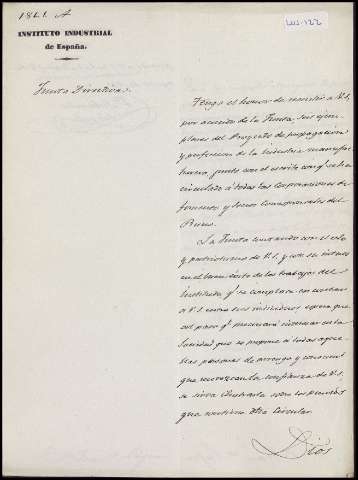 1841 A
LUS-122
INSTITUTO INDUSTRIAL
de España.
Junta Directiva.
Tengo el honor de remitir a V.S.
por acuerdo de la Junta, seis ejem-
plares del Proyecto de propagacion
y perfeccion de la industria manufac-
turera, junto con el escrito con qe. se ha
circulado á todas las Corporaciones de
fomento y Socios Corresponsales del
Reino.
La Junta contando con el celo
y patriotismo de V.S. y con su interes
en el buen éxito de los trabajos del
Instituto, qe. se complace en contar
a V.S. entre sus individuos, espera que
al paso qe. procurará
Sociedad que se propone a todas aque-
llas personas de arraigo y
que merezcan la confianza de V.S.
se sirva ilustrarla sobre los puntos
que contiene dha. Circular.
Dios